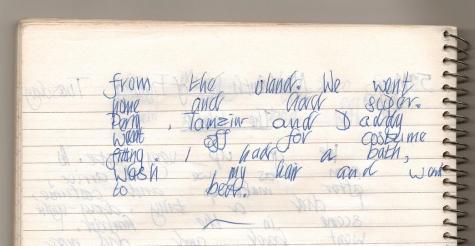 from the island. We went
home and had super.
Perry, Tamzin and Daddy
went off for costume
fitting. I had a bath,
wash my hair and went
to bed.